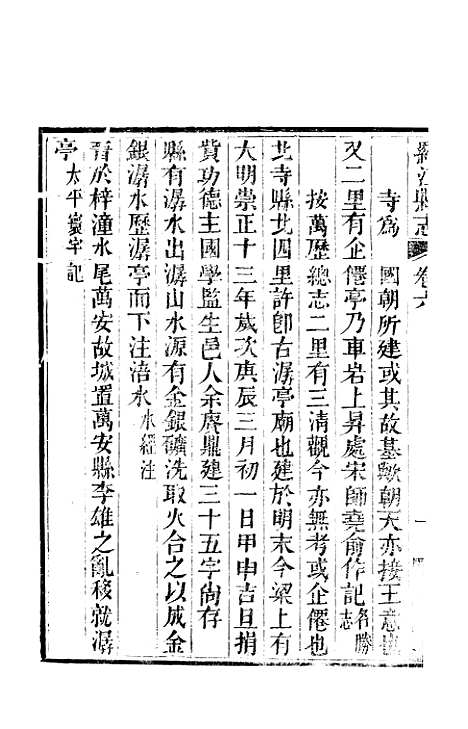 羅江縣志 卷六
寺爲 國朝所建或其故基歟朝天亦接王意也
又二里有企僊亭乃車岩上昇處宋師堯俞作記名勝志
按萬歷總志二里有三清觀今亦無考或企僊也
北寺縣北四里許卽古潺亭廟也建於明末今梁上有
大明崇正十三年歲次庚辰三月初一日甲申吉旦捐
貲功德主國學監生邑人余賡鼎建三十五字尙存
縣有潺水出潺山水源有金銀礦洗取火合之以成金
銀潺水歷潺亭而下注涪水水經注
晉於梓潼水尾萬安故城置萬安縣李雄之亂移就潺
亭太平寰宇記